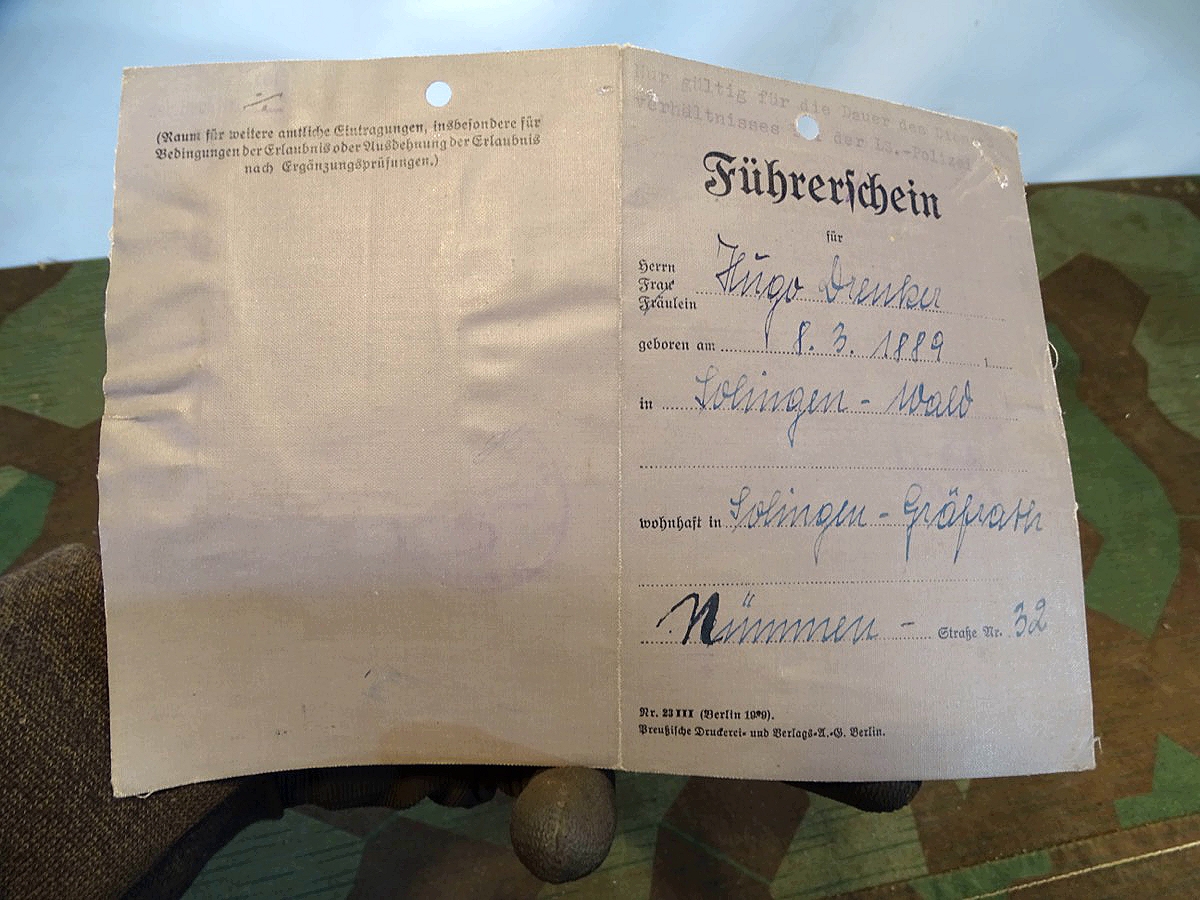 (Raum für weitere amtliche Eintragungen, insbesondere für
Bedingungen der Erlaubnis oder Ausdehnung der Erlaubnis
nach Ergänzungsprüfungen.)
Nur gültig für die Dauer des
verhältnisses der LS.-Polizei
Führerschein
für
Herrn Hugo Drenker
Frau
Fräulein
geboren am 8. 3. 1889
in Solingen - Wald
wohnhaft in Solingen - Gräfrath
Nümmen - Straße Nr. 32
Nr. 23 III (Berlin
Preußische Druckerei- und Verlags-A.-G. Berlin.